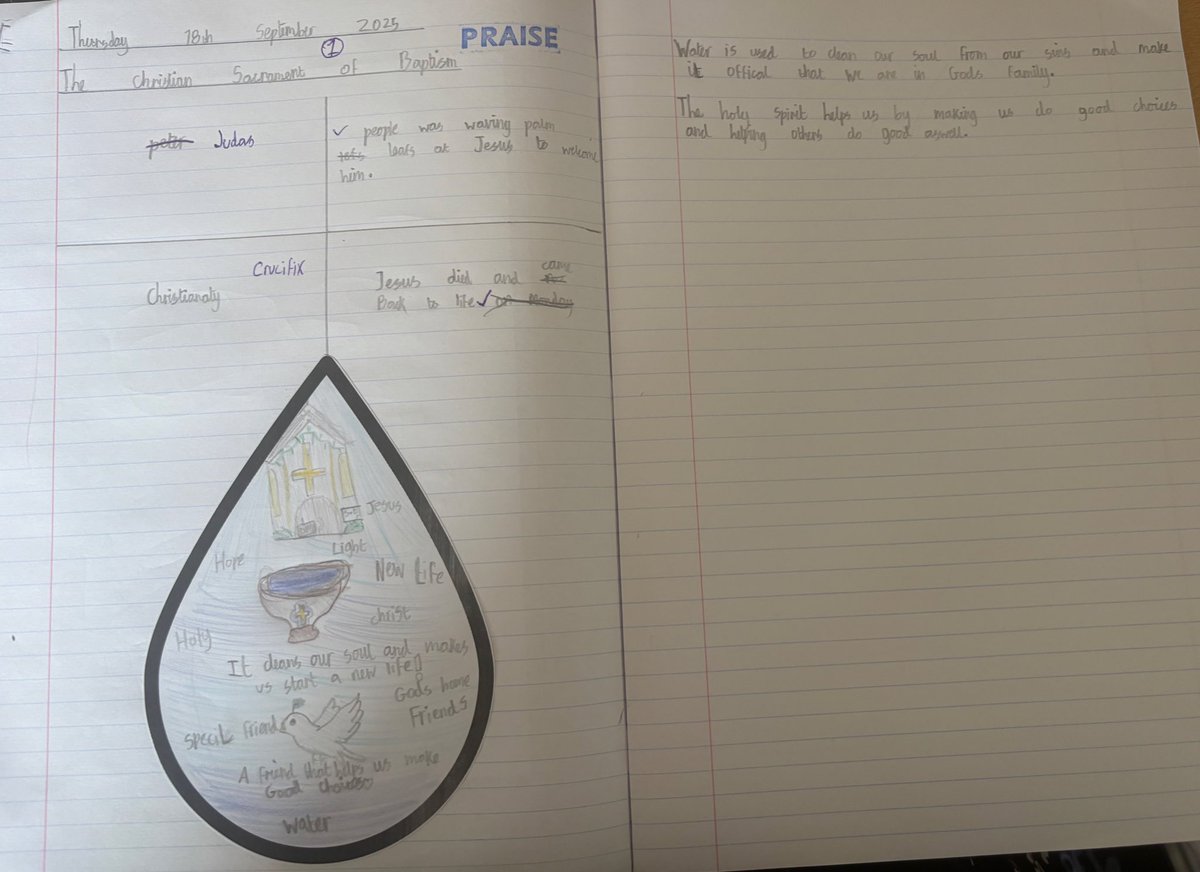 Thursday 18th September 2025
1
PRAISE
The Christian Sacrament of Baptism
peter Judas
✓ people was waving palm
leafs at Jesus to welcome
him.
Crucifix
Christianaty
Jesus died and came
Back to life ✓ on Monday
Jesus
Light
Hope
New Life
christ
Holy
It cleans our soul and makes
us start a new life!
Gods home
Friends
special Friend
A friend that helps us make
Good choices
Water
Water is used to clean our soul from our sins and make
it offical that we are in Gods Family.
The holy spirit helps us by making us do good choices
and helping others do good aswell.